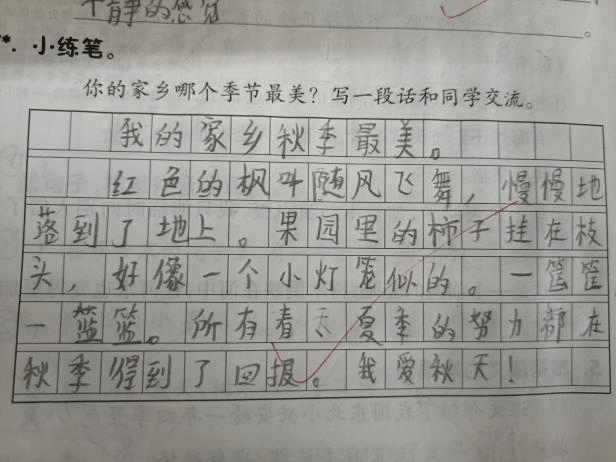 静的感觉
*. 小练笔。
你的家乡哪个季节最美?写一段话和同学交流。
我的家乡秋季最美。
红色的枫叶随风飞舞,慢慢地
落到了地上。果园里的柿子挂在枝
头,好像一个小灯笼似的。一筐筐
一蓝篮。所有春天夏季的努力都在
秋季得到了回报。我爱秋天!